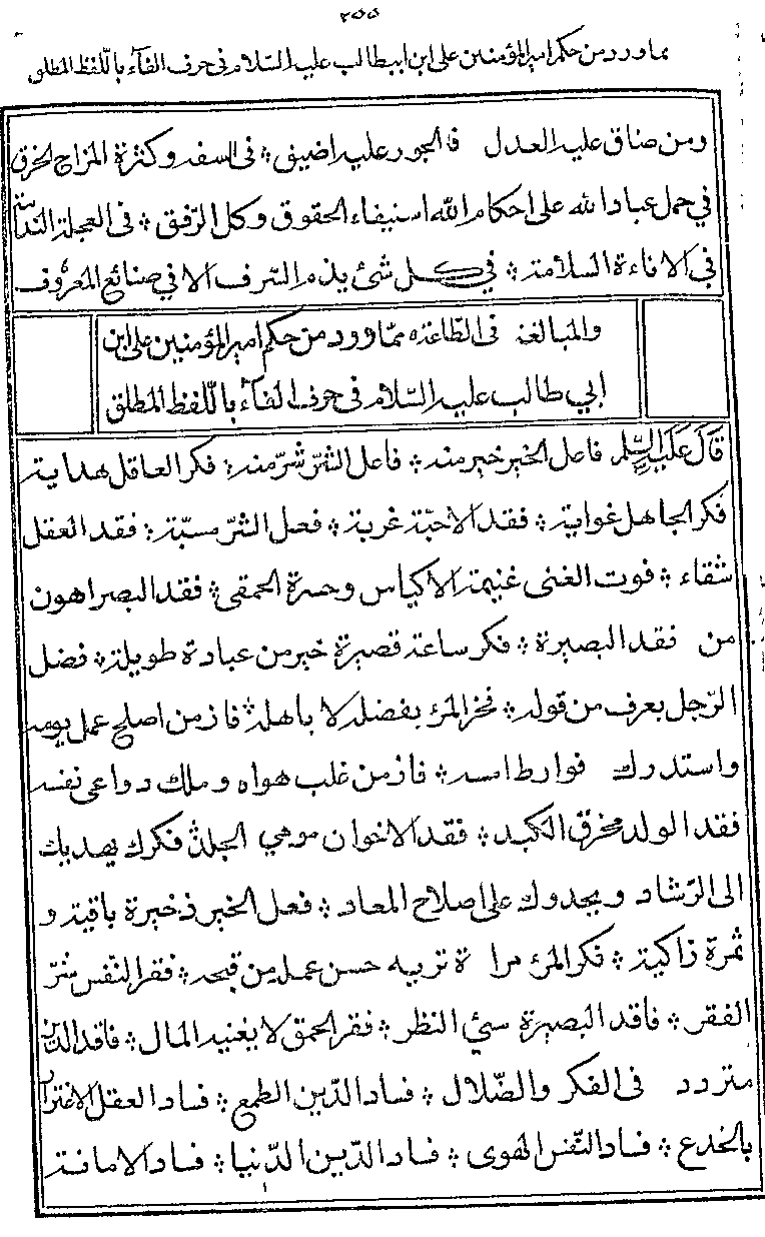 ٢٥٥
مما ورد من حكم امير المؤمنين على ابن ابيطالب عليه السّلام فى حرف الفآء باللّفظ المطلق
ومن ضاق عليه العدل فالجور عليه اضيق ؛ فى السفه وكثرة المزاح الخرق
في حمل عباد الله على احكام الله استيفاء الحقوق وكل الرّفق ؛ فى العجلة الندامة
فى الاناءة السلامة ؛ في كل شئ يذم السّرف الا في صنائع المعروف
والمبالغة فى الطّاعة ممّا وورد من حكم امير المؤمنين على ابن
ابي طالب عليه السّلام فى حرف الفآء باللّفظ المطلق
قال عليه السلم فاعل الخير خير منه ؛ فاعل الشّرّ شرّ منه ؛ فكر العاقل هداية
فكر الجاهل غواية ؛ فقد الاحبّة غربة ؛ فعل الشّرّ مسبّة ؛ فقد العقل
شقاء ؛ فوت الغنى غنيمة الاكياس وحسرة الحمقى ؛ فقد البصر اهون
من فقد البصيرة ؛ فكر ساعة قصيرة خير من عبادة طويلة ؛ فضل
الرّجل يعرف من قوله ؛ فخر المرؤ بفضله لا باهله ؛ فاز من اصلح عمل يومه
واستدرك فوارط امسه ؛ فاز من غلب هواه وملك دواعى نفسه
فقد الولد محرق الكبد ؛ فقد الاخوان موهي الجلد ؛ فكرك يهديك
الى الرّشاد ويحدوك على اصلاح المعاد ؛ فعل الخير ذخيرة باقية و
ثمرة زاكية ؛ فكر المرؤ مراة تريه حسن عمله من قبحه ؛ فقر النّفس شرّ
الفقر ؛ فاقد البصيرة سئ النظر ؛ فقر الحمق لا يغنيه المال ؛ فاقد الدّين
متردد فى الفكر والضّلال ؛ فساد الدّين الطمع ؛ فساد العقل الاغترار
بالخدع ؛ فساد النّفس الهوى ؛ فساد الدّين الدّنيا ؛ فساد الامانة